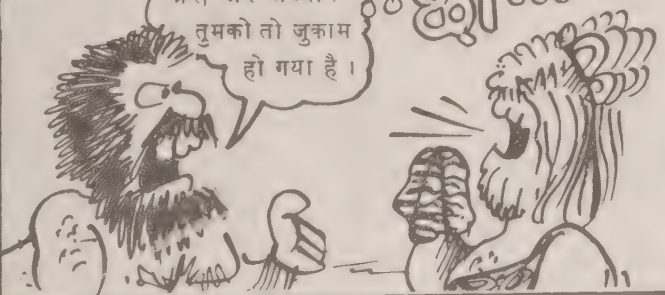 तुमको तो जुकाम
हो गया है ।